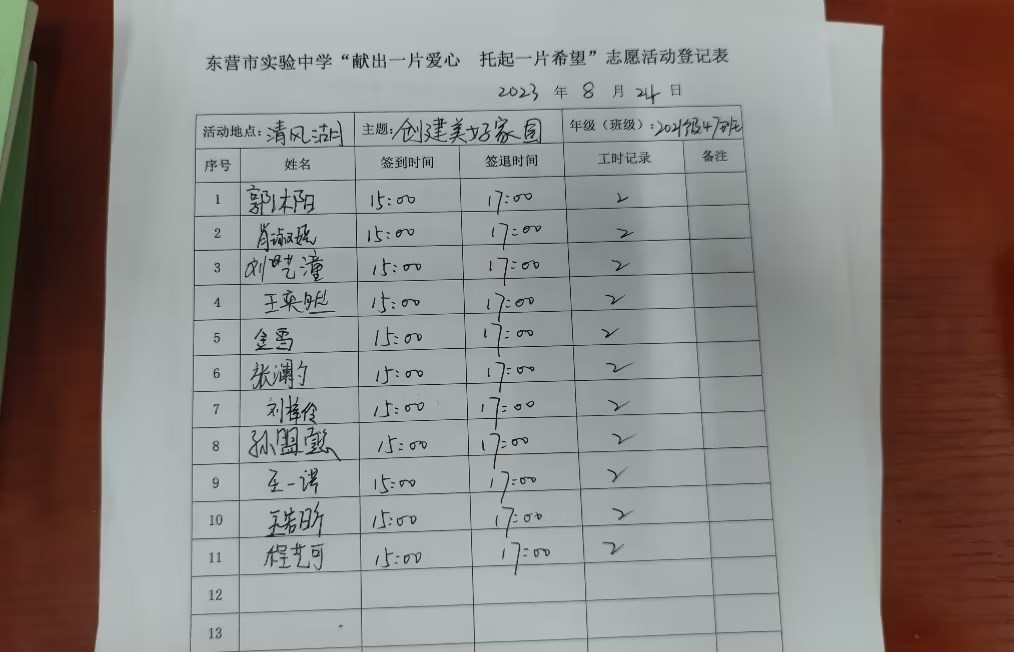 东营市实验中学“献出一片爱心 托起一片希望”志愿活动登记表
2023 年 8 月 24 日
活动地点：清风湖 主题：创建美好家园 年级（班级）：2021级47班
序号 姓名 签到时间 签退时间 工时记录 备注
1 郭沐阳 15:00 17:00 2
2 肖淑 15:00 17:00 2
3 刘艺潼 15:00 17:00 2
4 王奕然 15:00 17:00 2
5 金雪 15:00 17:00 2
6 张澜 15:00 17:00 2
7 刘梓伶 15:00 17:00 2
8 孙盟 15:00 17:00 2
9 王一诺 15:00 17:00 2
10 王若昕 15:00 17:00 2
11 程艺可 15:00 17:00 2
12
13